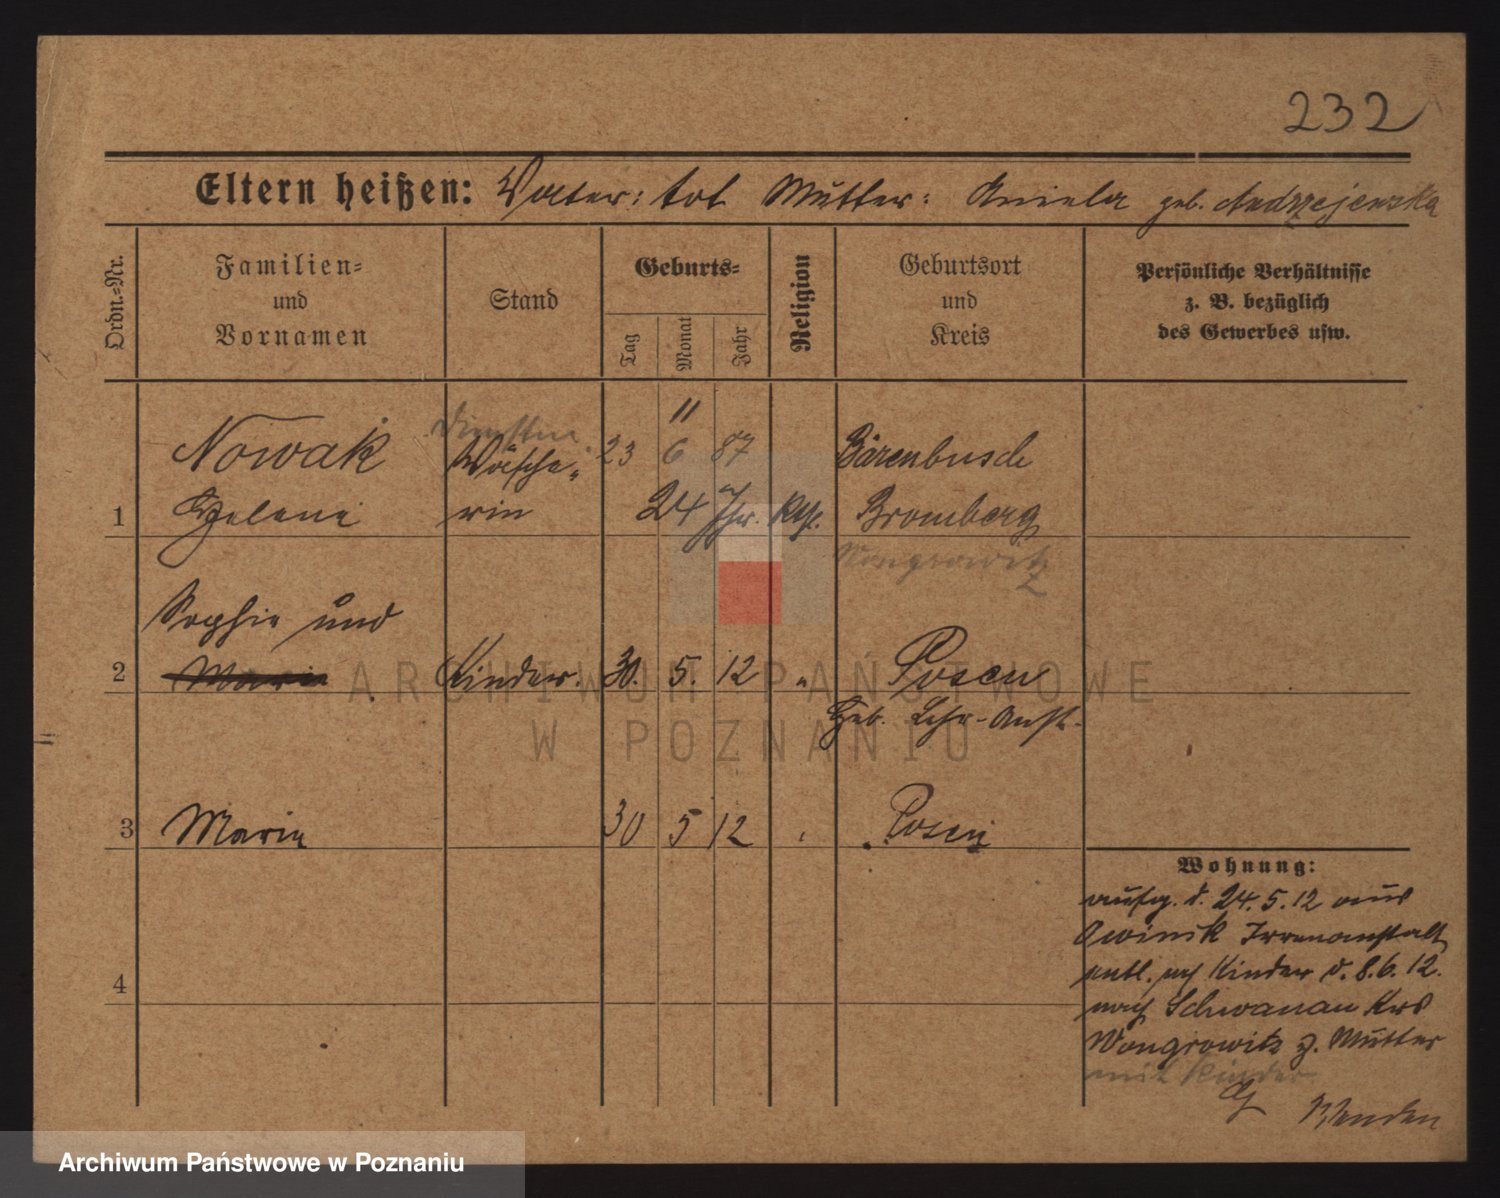 232
Eltern heißen: Vater: tot Mutter: Aniela geb. Andrzejewska
Ordn.=Nr.
Familien=
und
Vornamen
Stand
Geburts=
Tag
Monat
Jahr
Religion
Geburtsort
und
Kreis
Persönliche Verhältnisse
z. B. bezüglich
des Gewerbes usw.
11
Nowak Wäsche- 23 6 87 Bärenbusch
1 Helene rin 24 Jhr. kath. Bromberg
Wongrowitz
Sophie und
2 Maria Kinder. 30. 5. 12 " Posen
Geb. Lehr-Anst.
3 Maria 30 5 12 Posen
4
Wohnung:
aufg. d. 24.5.12 aus
Owinsk Irrenanstalt
entl. mit Kinder d. 8.6.12.
nach Schwanau Krs
Wongrowitz z. Mutter
mit Kinder
ARCHIWUM PAŃSTWOWE
W POZNANIU
Archiwum Państwowe w Poznaniu